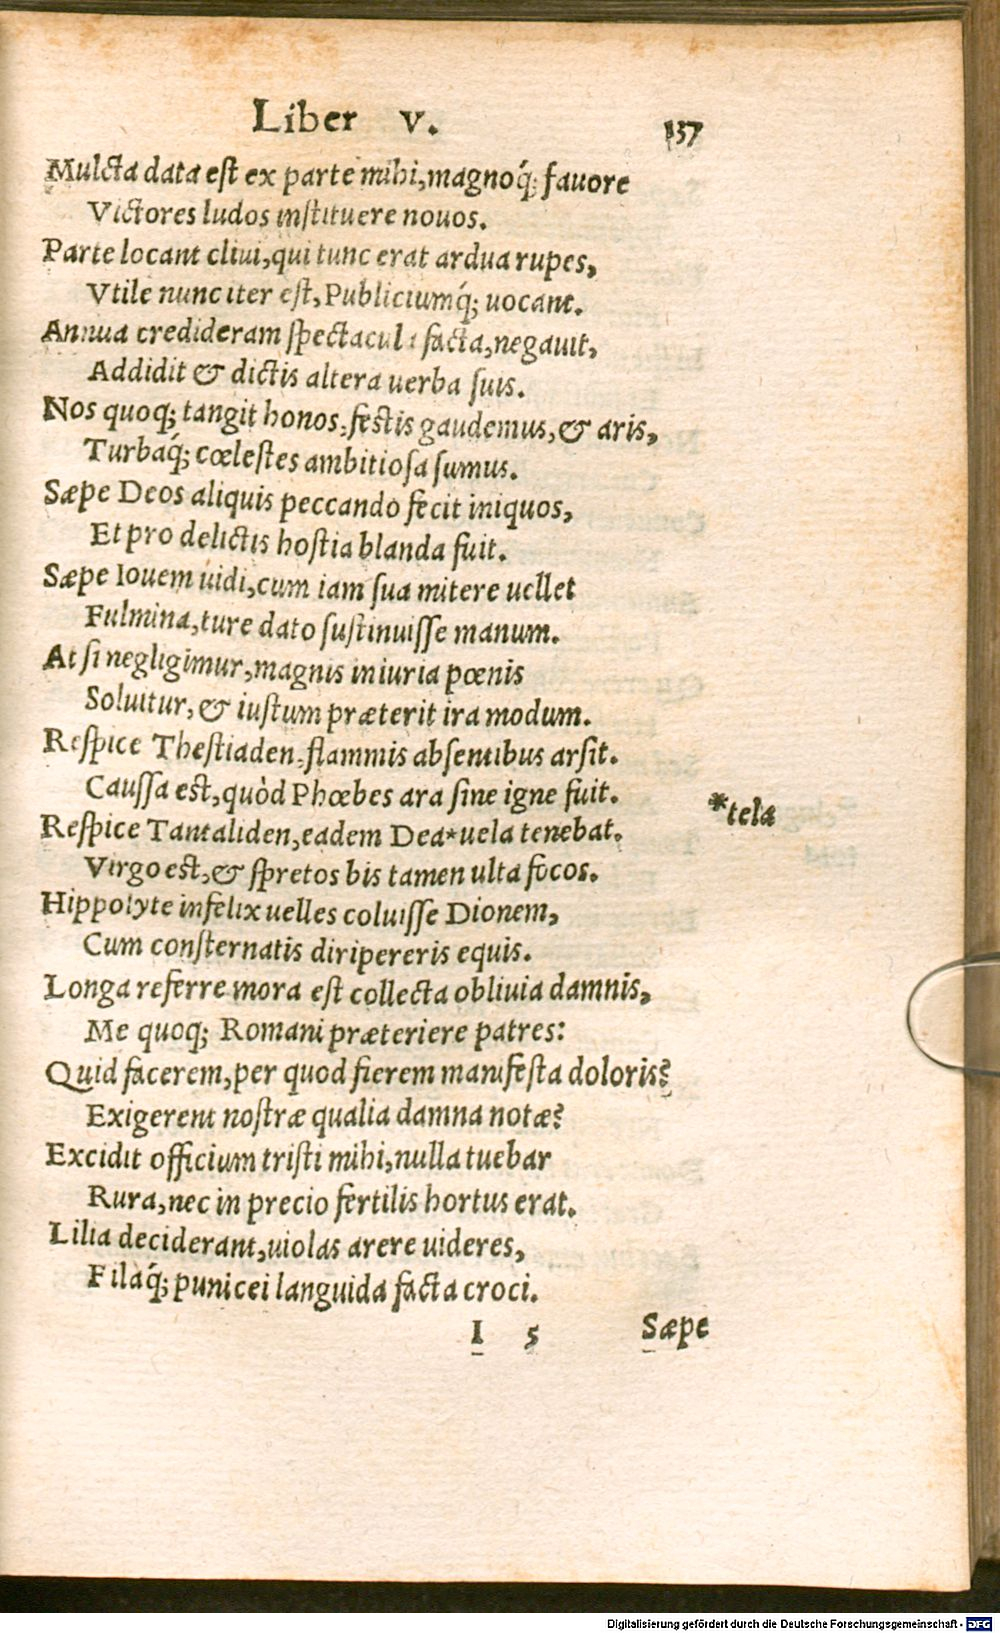 Liber V. 137
Mulcta data est ex parte mihi, magnoq́; fauore
Victores ludos instituere nouos.
Parte locant cliui, qui tunc erat ardua rupes,
Vtile nunc iter est, Publiciumq́; uocant.
Annua credideram spectacula facta, negauit,
Addidit & dictis altera uerba suis.
Nos quoq; tangit honos, festis gaudemus, & aris,
Turbaq́; cœlestes ambitiosa sumus.
Sæpe Deos aliquis peccando fecit iniquos,
Et pro delictis hostia blanda fuit.
Sæpe Iouem uidi, cum iam sua mitere uellet
Fulmina, ture dato sustinuisse manum.
At si negligimur, magnis iniuria pœnis
Soluitur, & iustum præterit ira modum.
Respice Thestiaden, flammis absentibus arsit.
Caussa est, quòd Phœbes ara sine igne fuit.
*tela
Respice Tantaliden, eadem Dea*uela tenebat.
Virgo est, & spretos bis tamen ulta focos.
Hippolyte infelix uelles coluisse Dionem,
Cum consternatis diripereris equis.
Longa referre mora est collecta obliuia damnis,
Me quoq; Romani præteriere patres:
Quid facerem, per quod fierem manifesta doloris?
Exigerent nostræ qualia damna notæ?
Excidit officium tristi mihi, nulla tuebar
Rura, nec in precio fertilis hortus erat.
Lilia deciderant, uiolas arere uideres,
Filaq́; punicei languida facta croci.
I 5 Sæpe
Digitalisierung gefördert durch die Deutsche Forschungsgemeinschaft - DFG